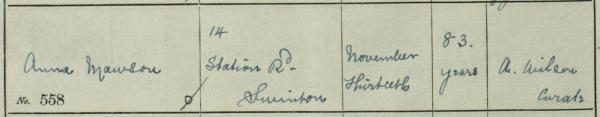 Anna Mawson
No. 558
14
Station Rd.
Swinton
November
Thirtieth
83.
years
A. Wilson
Curate